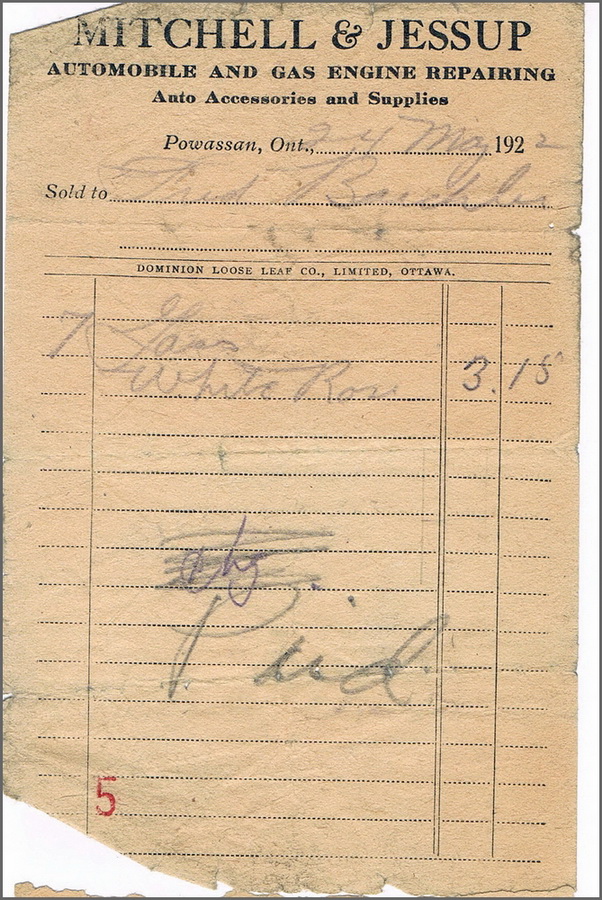 MITCHELL & JESSUP
AUTOMOBILE AND GAS ENGINE REPAIRING
Auto Accessories and Supplies
Powassan, Ont., 24 May 1922
Sold to Fred
DOMINION LOOSE LEAF CO., LIMITED, OTTAWA.
7 Gass
White Rose 3.15
chg
Paid
5